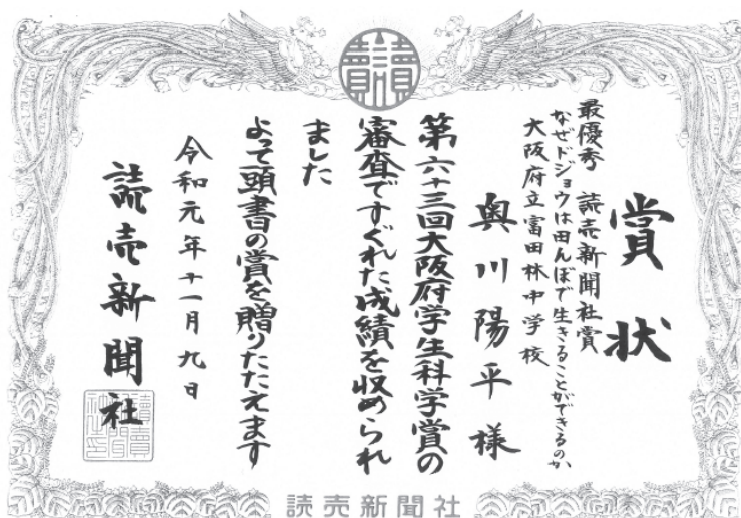 讀賣
賞状
最優秀 読売新聞社賞
なぜドジョウは田んぼで生きることができるのか
大阪府立富田林中学校
奥川陽平様
第六十三回大阪府学生科学賞の
審査ですぐれた成績を収められ
ました
よって頭書の賞を贈りたたえます
令和元年十一月九日
読売新聞社
読売新聞社